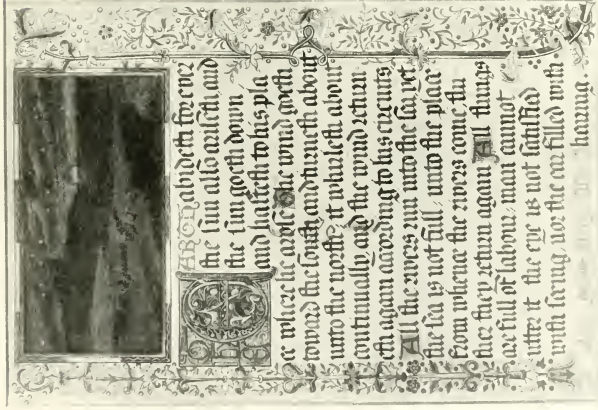 abideth for ever
the sun also ariseth, and
the sun goeth down
and hasteth to his pla
ce where he arose The wind goeth
toward the south, and turneth about
unto the north, it whirleth about
continually, and the wind return
eth again according to his circuits
All the rivers run into the sea, yet
the sea is not full : unto the place
from whence the rivers come thi
ther they return again All things
are full of labour, man cannot
utter it the eye is not satisfied
with seing, nor the ear filled with
hearing.